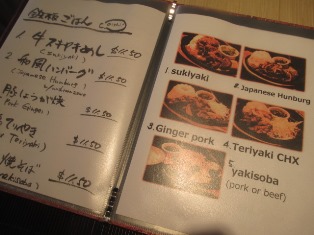 鉄板ごはん
1 牛スキヤキめし $11.50
(Sukiyaki)
2 和風ハンバーグ $11.50
(Japanese Hamburg)
豚しょうが焼 $11.50
Pork Ginger
てりやき $11.50
Teriyaki)
焼そば $11.50
yakisoba)
1 sukiyaki
2 Japanese Hunburg
3. Ginger pork
4. Teriyaki CHX
5
yakisoba
(pork or beef)